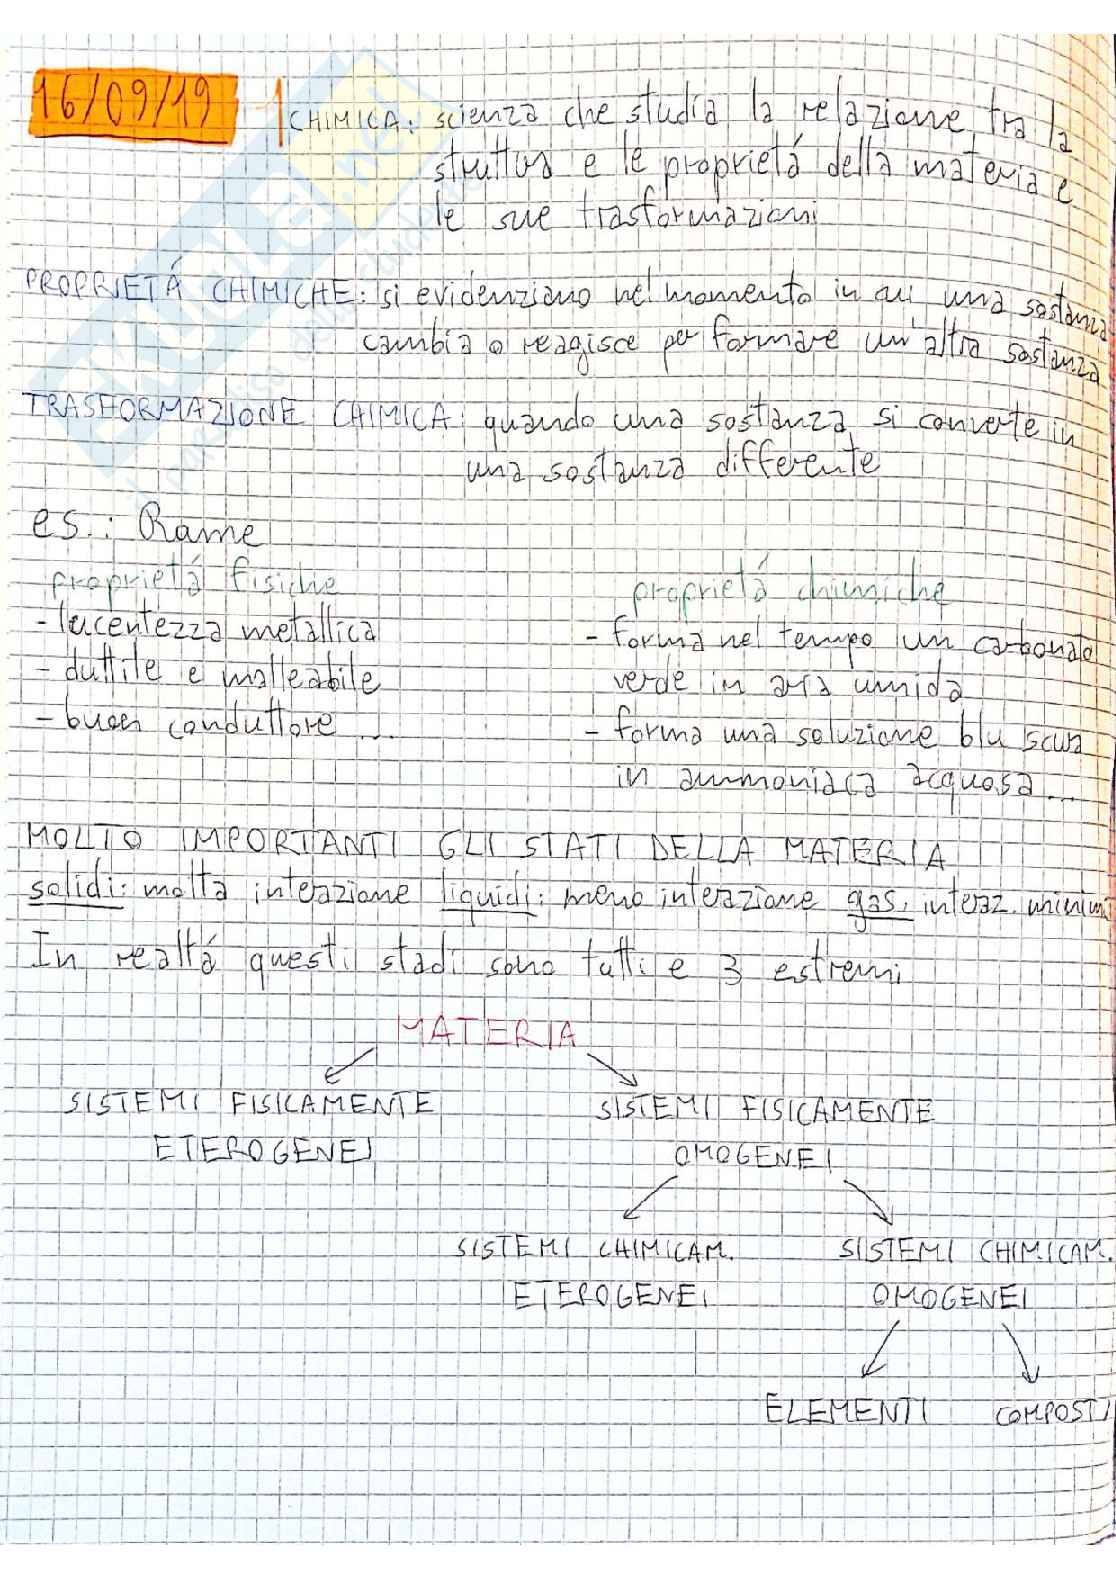 16/09/19
CHIMICA: scienza che studia la relazione tra la
struttura e le proprietá della materia e
le sue trasformazioni
PROPRIETÁ CHIMICHE: si evidenziano nel momento in cui una sostanza
cambia o reagisce per formare un'altra sostanza
TRASFORMAZIONE CHIMICA: quando una sostanza si converte in
una sostanza differente
es.: Rame
proprietá fisiche
- lucentezza metallica
- duttile e malleabile
- buon conduttore ...
proprietá chimiche
- forma nel tempo un carbonato
verde in aria umida
- forma una soluzione blu scura
in ammoniaca acquosa...
MOLTO IMPORTANTI GLI STATI DELLA MATERIA
solidi: molta interazione liquidi: meno interazione gas: interaz. minima
In realtá questi stadi sono tutti e 3 estremi
MATERIA
SISTEMI FISICAMENTE
ETEROGENEI
SISTEMI FISICAMENTE
OMOGENEI
SISTEMI CHIMICAM.
ETEROGENEI
SISTEMI CHIMICAM.
OMOGENEI
ELEMENTI COMPOSTI